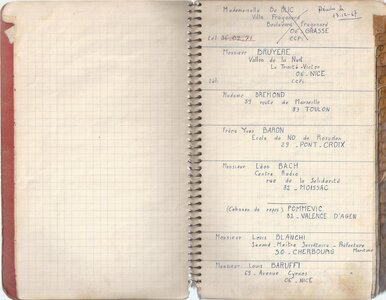 Mademoiselle De BLIC
Villa Fragonard
Boulevard Fragonard
06 GRASSE
tél. 36.02.71 CCP.
Décédée le
13.12.67
Monsieur BRUYERE
Vallon de la Nuit
La Trinité-Victor
06. NICE
tél. CCP.
Madame BREMOND
39 route de Marseille
83 TOULON
Frère Yves BARON
Ecole de ND de
29 - PONT-CROIX
Monsieur Léon BACH
Centre Radio
rue de la Solidarité
82 - MOISSAC
(Cabanon de repos) POMMEVIC
82 - VALENCE D'AGEN
Monsieur Louis BLANCHI
Second-Maître Secrétaire - Préfecture
Maritime
50 - CHERBOURG
Monsieur Louis BARUFFI
69 - Avenue Cyrnos
06 - NICE